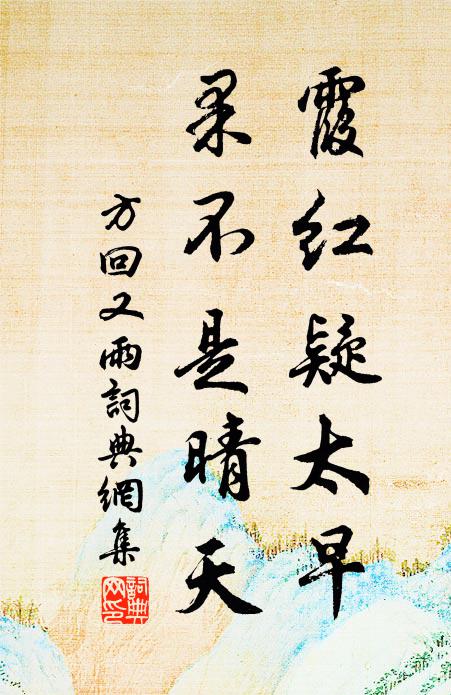 霞红疑太早
果不是晴天
方回又雨詞典網集
詞典
网印